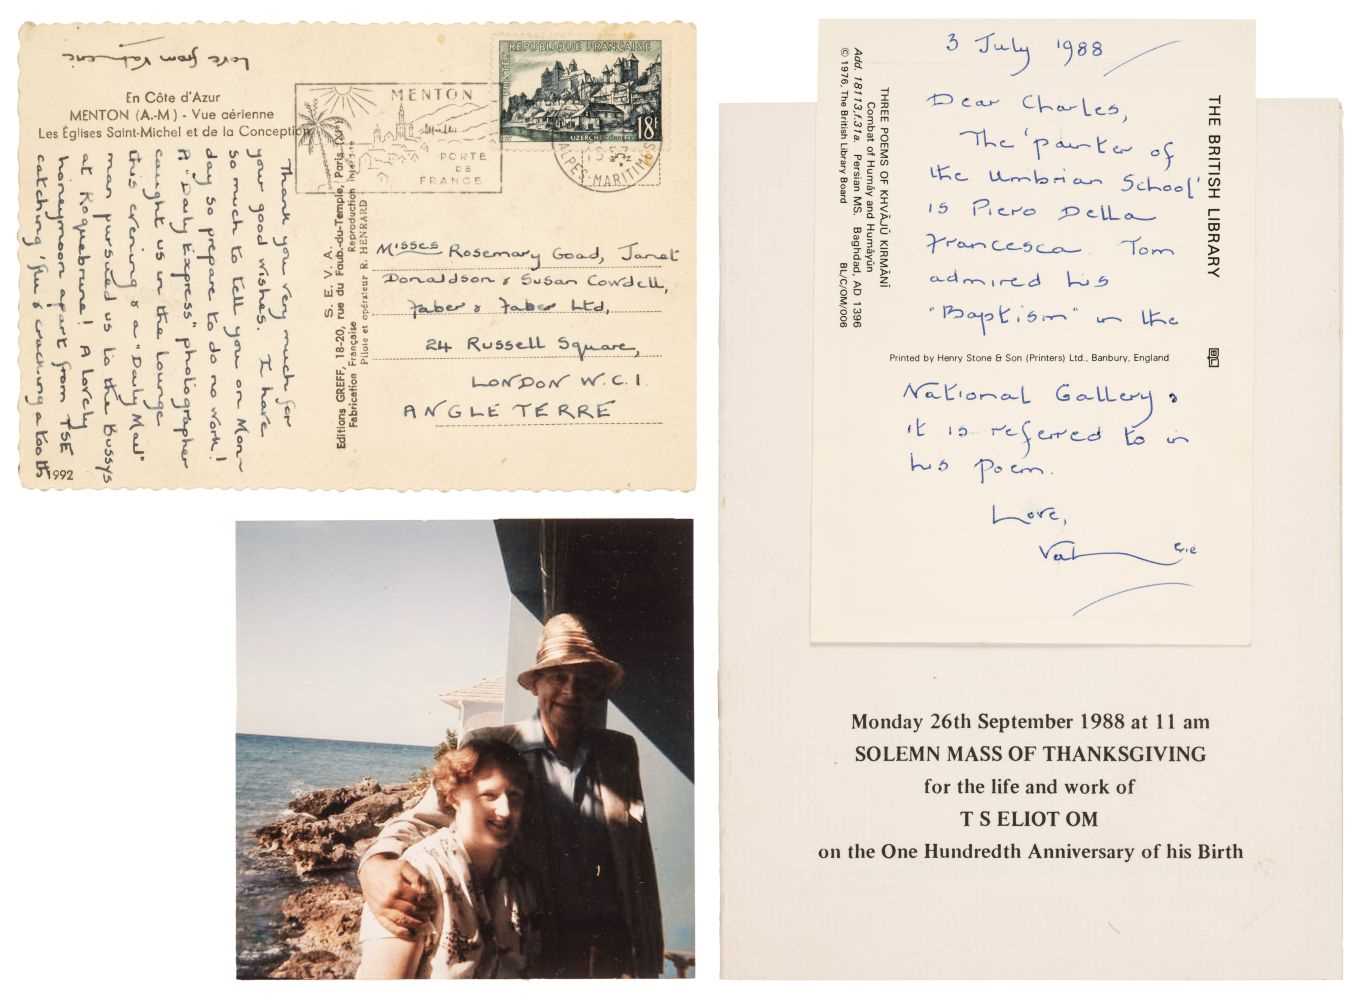 love from Valerie
En Côte d'Azur
MENTON (A.-M) - Vue aérienne
Les Églises Saint-Michel et de la Conception
Thank you very much for
your good wishes. I have
so much to tell you on Mon-
day so prepare to do no work!
A "Daily Express" photographer
caught us in the lounge
this evening & a "Daily Mail"
man pursued us to the Bussys
at Roquebrune! A lovely
honeymoon apart from TSE
catching 'flu & cracking a tooth
1992
Editions GREFF, 18-20, rue du Faub-du-Temple, Paris
S. E. V. A.
Fabrication Française
Reproduction
Pilote et opérateur R. HENRARD
MENTON
PORTE
DE
FRANCE
REPUBLIQUE FRANÇAISE
POSTES
UZERCHE
18F
1957
ALPES-MARITIMES
Misses Rosemary Goad, Janet
Donaldson & Susan Cowdell,
Faber & Faber Ltd,
24 Russell Square,
LONDON W.C.1.
ANGLETERRE
3 July 1988
Dear Charles,
The 'painter of
the Umbrian School'
is Piero Della
Francesca. Tom
admired his
"Baptism" in the
National Gallery &
it is referred to in
his poem.
Love,
Valerie
THE BRITISH LIBRARY
THREE POEMS OF KHVĀJŪ KIRMĀNĪ
Combat of Humāy and Humāyūn
Add. 18113.f.31a. Persian MS. Baghdad, AD 1396
© 1976, The British Library Board BL/C/OM/006
Printed by Henry Stone & Son (Printers) Ltd., Banbury, England
BL
Monday 26th September 1988 at 11 am
SOLEMN MASS OF THANKSGIVING
for the life and work of
T S ELIOT OM
on the One Hundredth Anniversary of his Birth